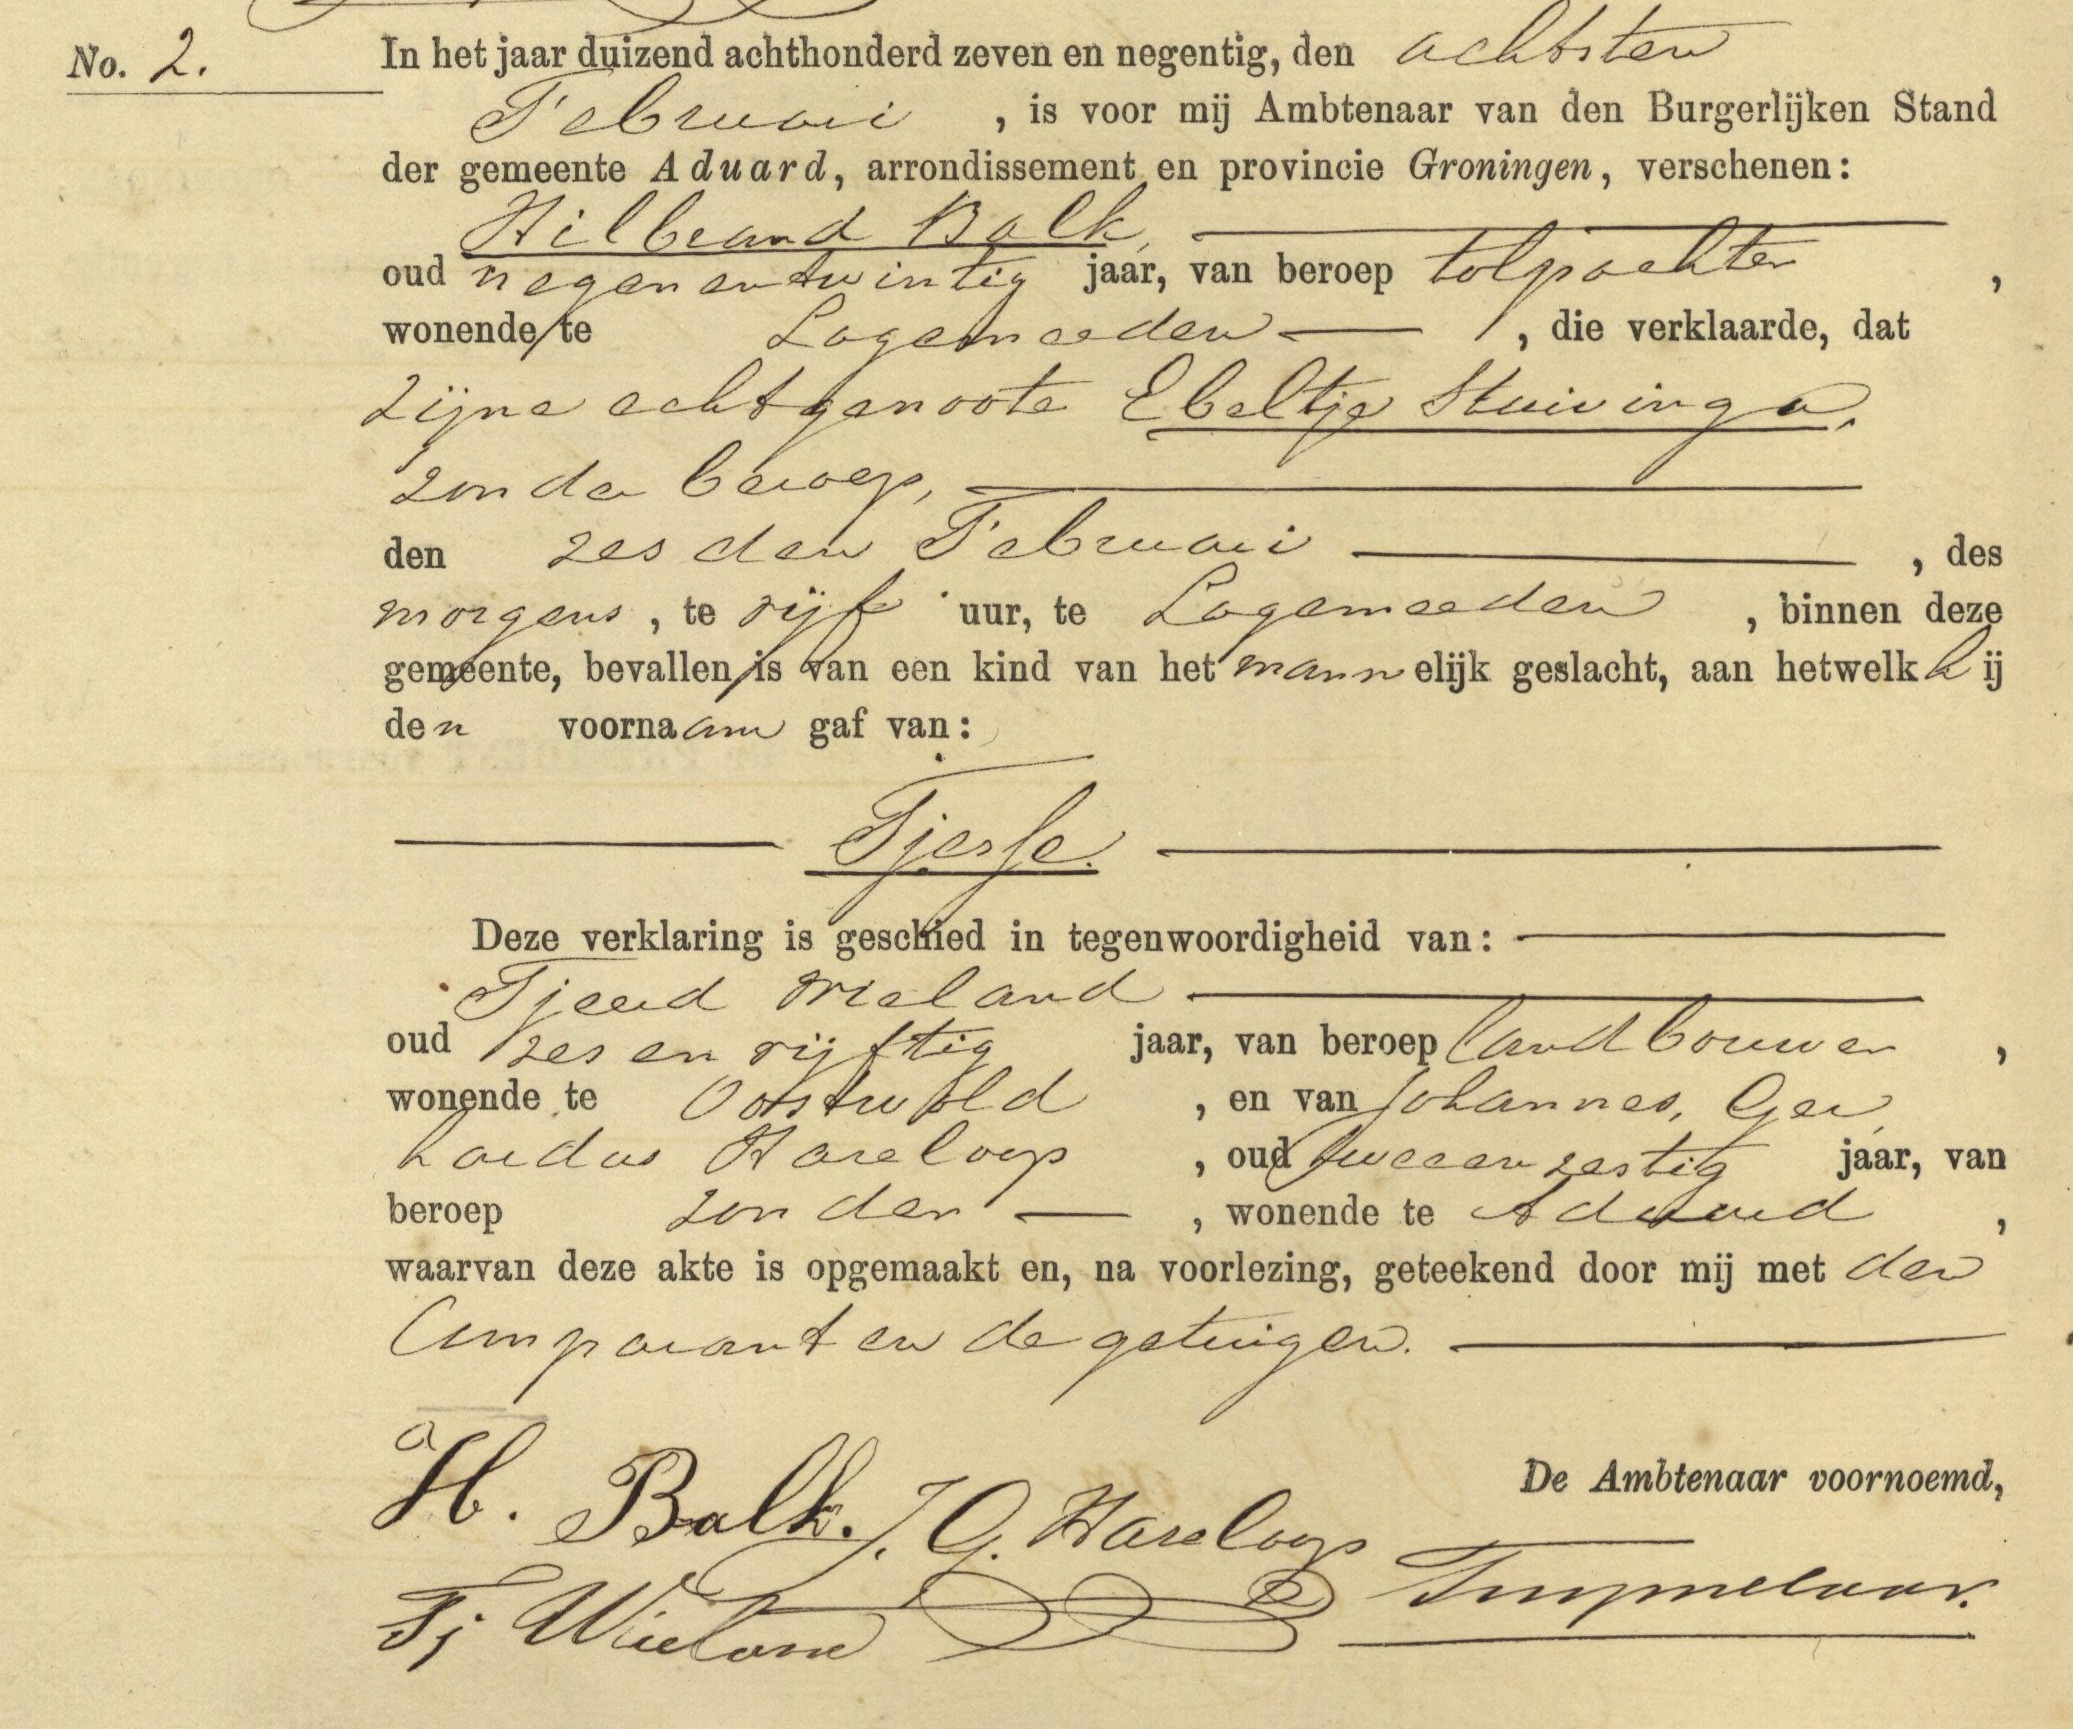 No. 2. In het jaar duizend achthonderd zeven en negentig, den achtsten
Februari , is voor mij Ambtenaar van den Burgerlijken Stand
der gemeente Aduard, arrondissement en provincie Groningen, verschenen:
Hilbrand Balk,
oud negenentwintig jaar, van beroep tolpachter ,
wonende te Lagemeeden , die verklaarde, dat
zijne echtgenoote Ebeltje Stuivinga,
zonder beroep,
den zesden Februari , des
morgens , te vijf uur, te Lagemeeden , binnen deze
gemeente, bevallen is van een kind van het mannelijk geslacht, aan hetwelk hij
den voornaam gaf van:
Tjesse.
Deze verklaring is geschied in tegenwoordigheid van:
Tjeerd Wieland
oud zesenvijftig jaar, van beroep landbouwer ,
wonende te Oostwold , en van Johannes, Ger
hardus Hazeloop , oud tweeenzestig jaar, van
beroep zonder , wonende te Aduard ,
waarvan deze akte is opgemaakt en, na voorlezing, geteekend door mij met den
Comparant en de getuigen.
H. Balk. J. G. Hazeloop De Ambtenaar voornoemd,
Tj Wieland